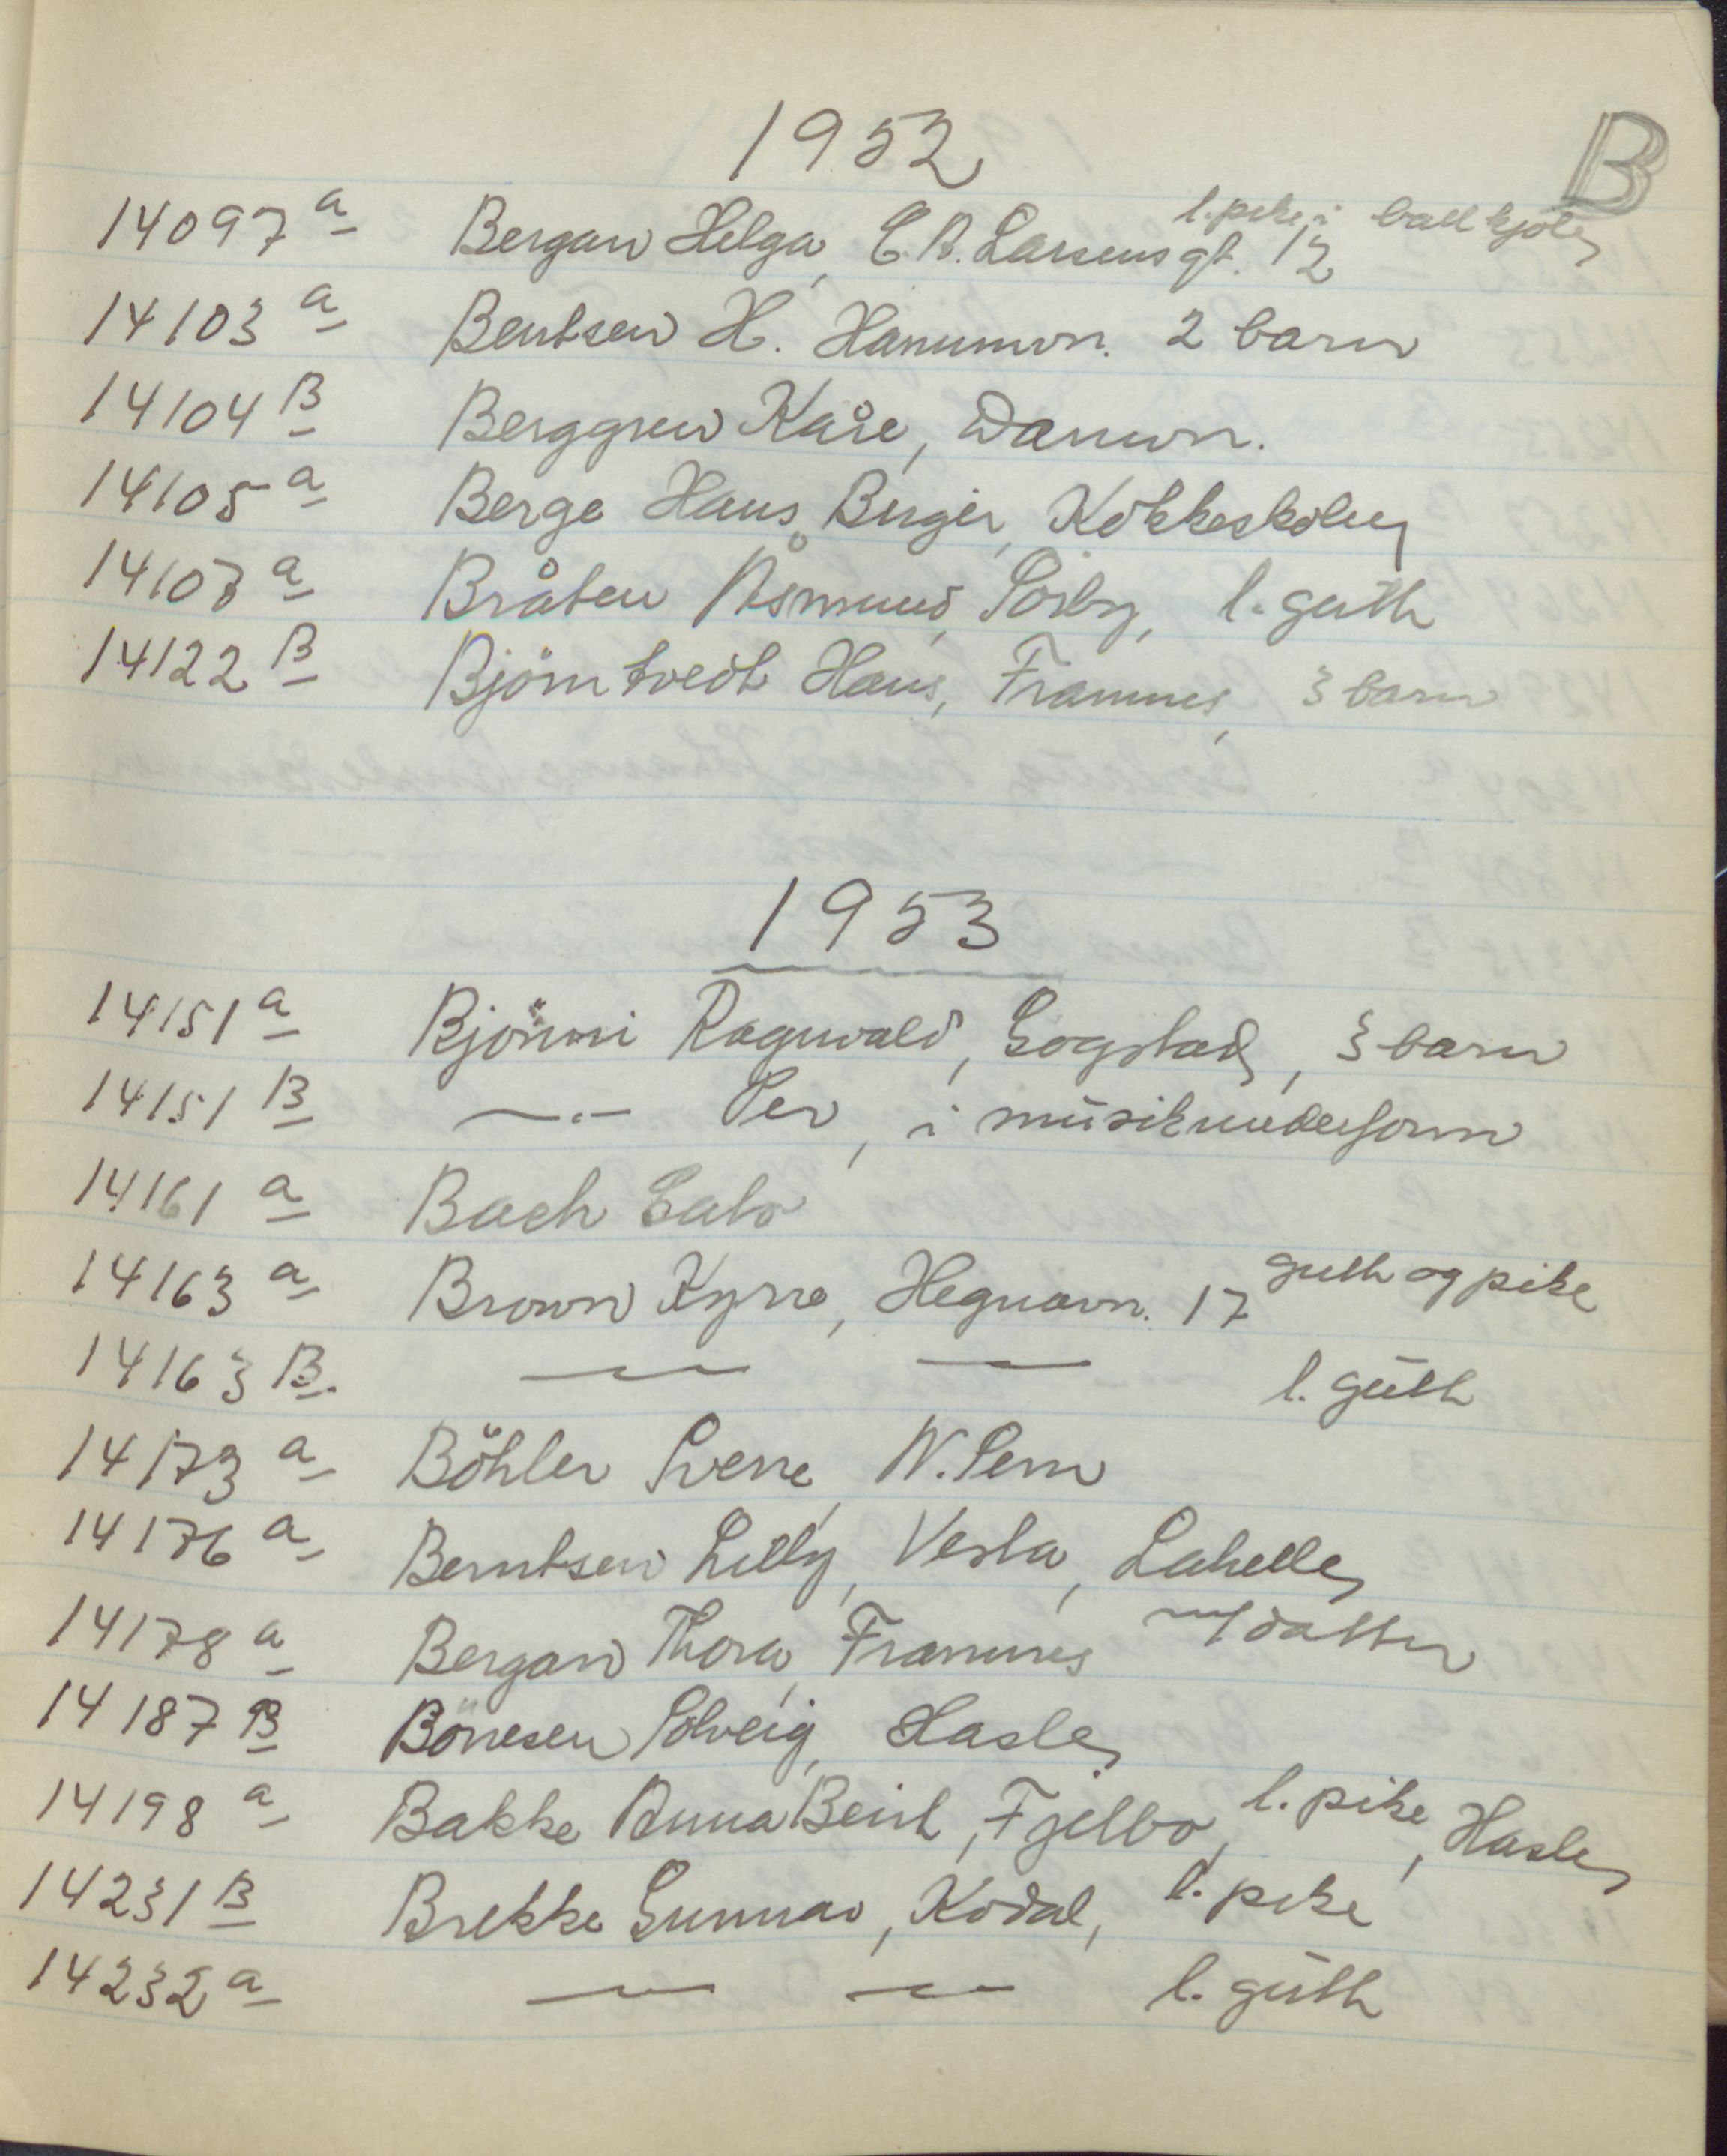 B
1952
14097 a Bergan Helga, C.A. Larsensgt. 12 l. pike i ballkjole
14103 a Bentsen H. Hammern. 2 barn
14104 B Berggren Kåre,
14105 a Berge Hans Birger, Kokkeskolen
a Bråten Åsmund, Sörby, l. gutt
14122 B Björntvedt Hans, Framnes, 3 barn
1953
14151 a Björnni Ragnvald, Gogstad, 3 barn
14151 B —.— Per, i musikuniform
14161 a Bach
14163 a Brown Kyrre, Hegnavn. 17 gutt og pike
14163 B. — — l. gutt
14173 a Böhler Sverre, N. Sem
14176 a Berntsen Lilly, Vesla, Lahelle
14178 a Bergan Thora, Framnes m/datter
14187 B Bönesen Solveig, Hasle
14198 a Bakke Anna Berit, Fjellbo, l. pike, Hasle
14231 B Brekke Gunnar, Kodal, l. pike
14232 a — — l. gutt